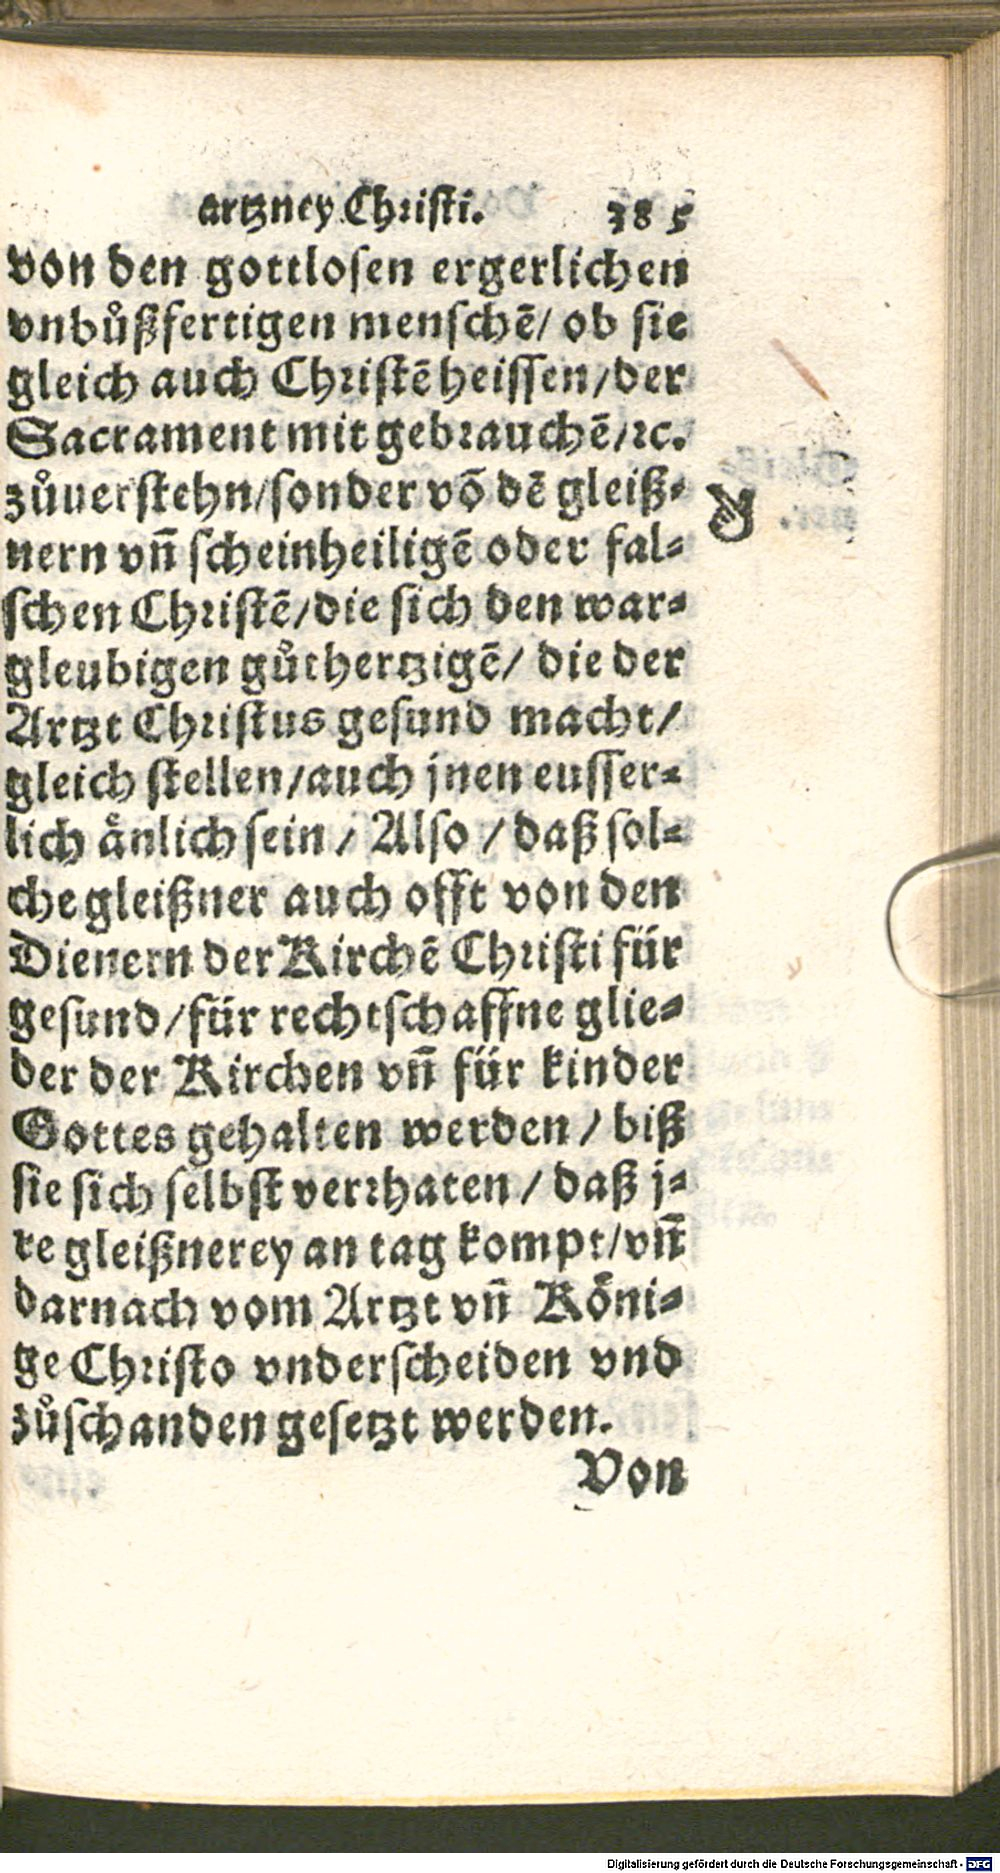 artzney Christi. 385
von den gottlosen ergerlichen
vnbůßfertigen menschẽ/ ob sie
gleich auch Christẽ heissen/der
Sacrament mit gebrauchẽ/ꝛc.
zůuerstehn/sonder võ dẽ gleiß-
nern vñ scheinheiligẽ oder fal-
schen Christẽ/die sich den war-
gleubigen gůthertzigẽ/ die der
Artzt Christus gesund macht/
gleich stellen/auch jnen eusser-
lich änlich sein / Also / daß sol-
che gleißner auch offt von den
Dienern der Kirchẽ Christi für
gesund/für rechtschaffne glie-
der der Kirchen vñ für kinder
Gottes gehalten werden / biß
sie sich selbst verrhaten / daß j-
re gleißnerey an tag kompt/vñ
darnach vom Artzt vñ Köni-
ge Christo vnderscheiden vnd
zůschanden gesetzt werden.
Von
Digitalisierung gefördert durch die Deutsche Forschungsgemeinschaft - DFG